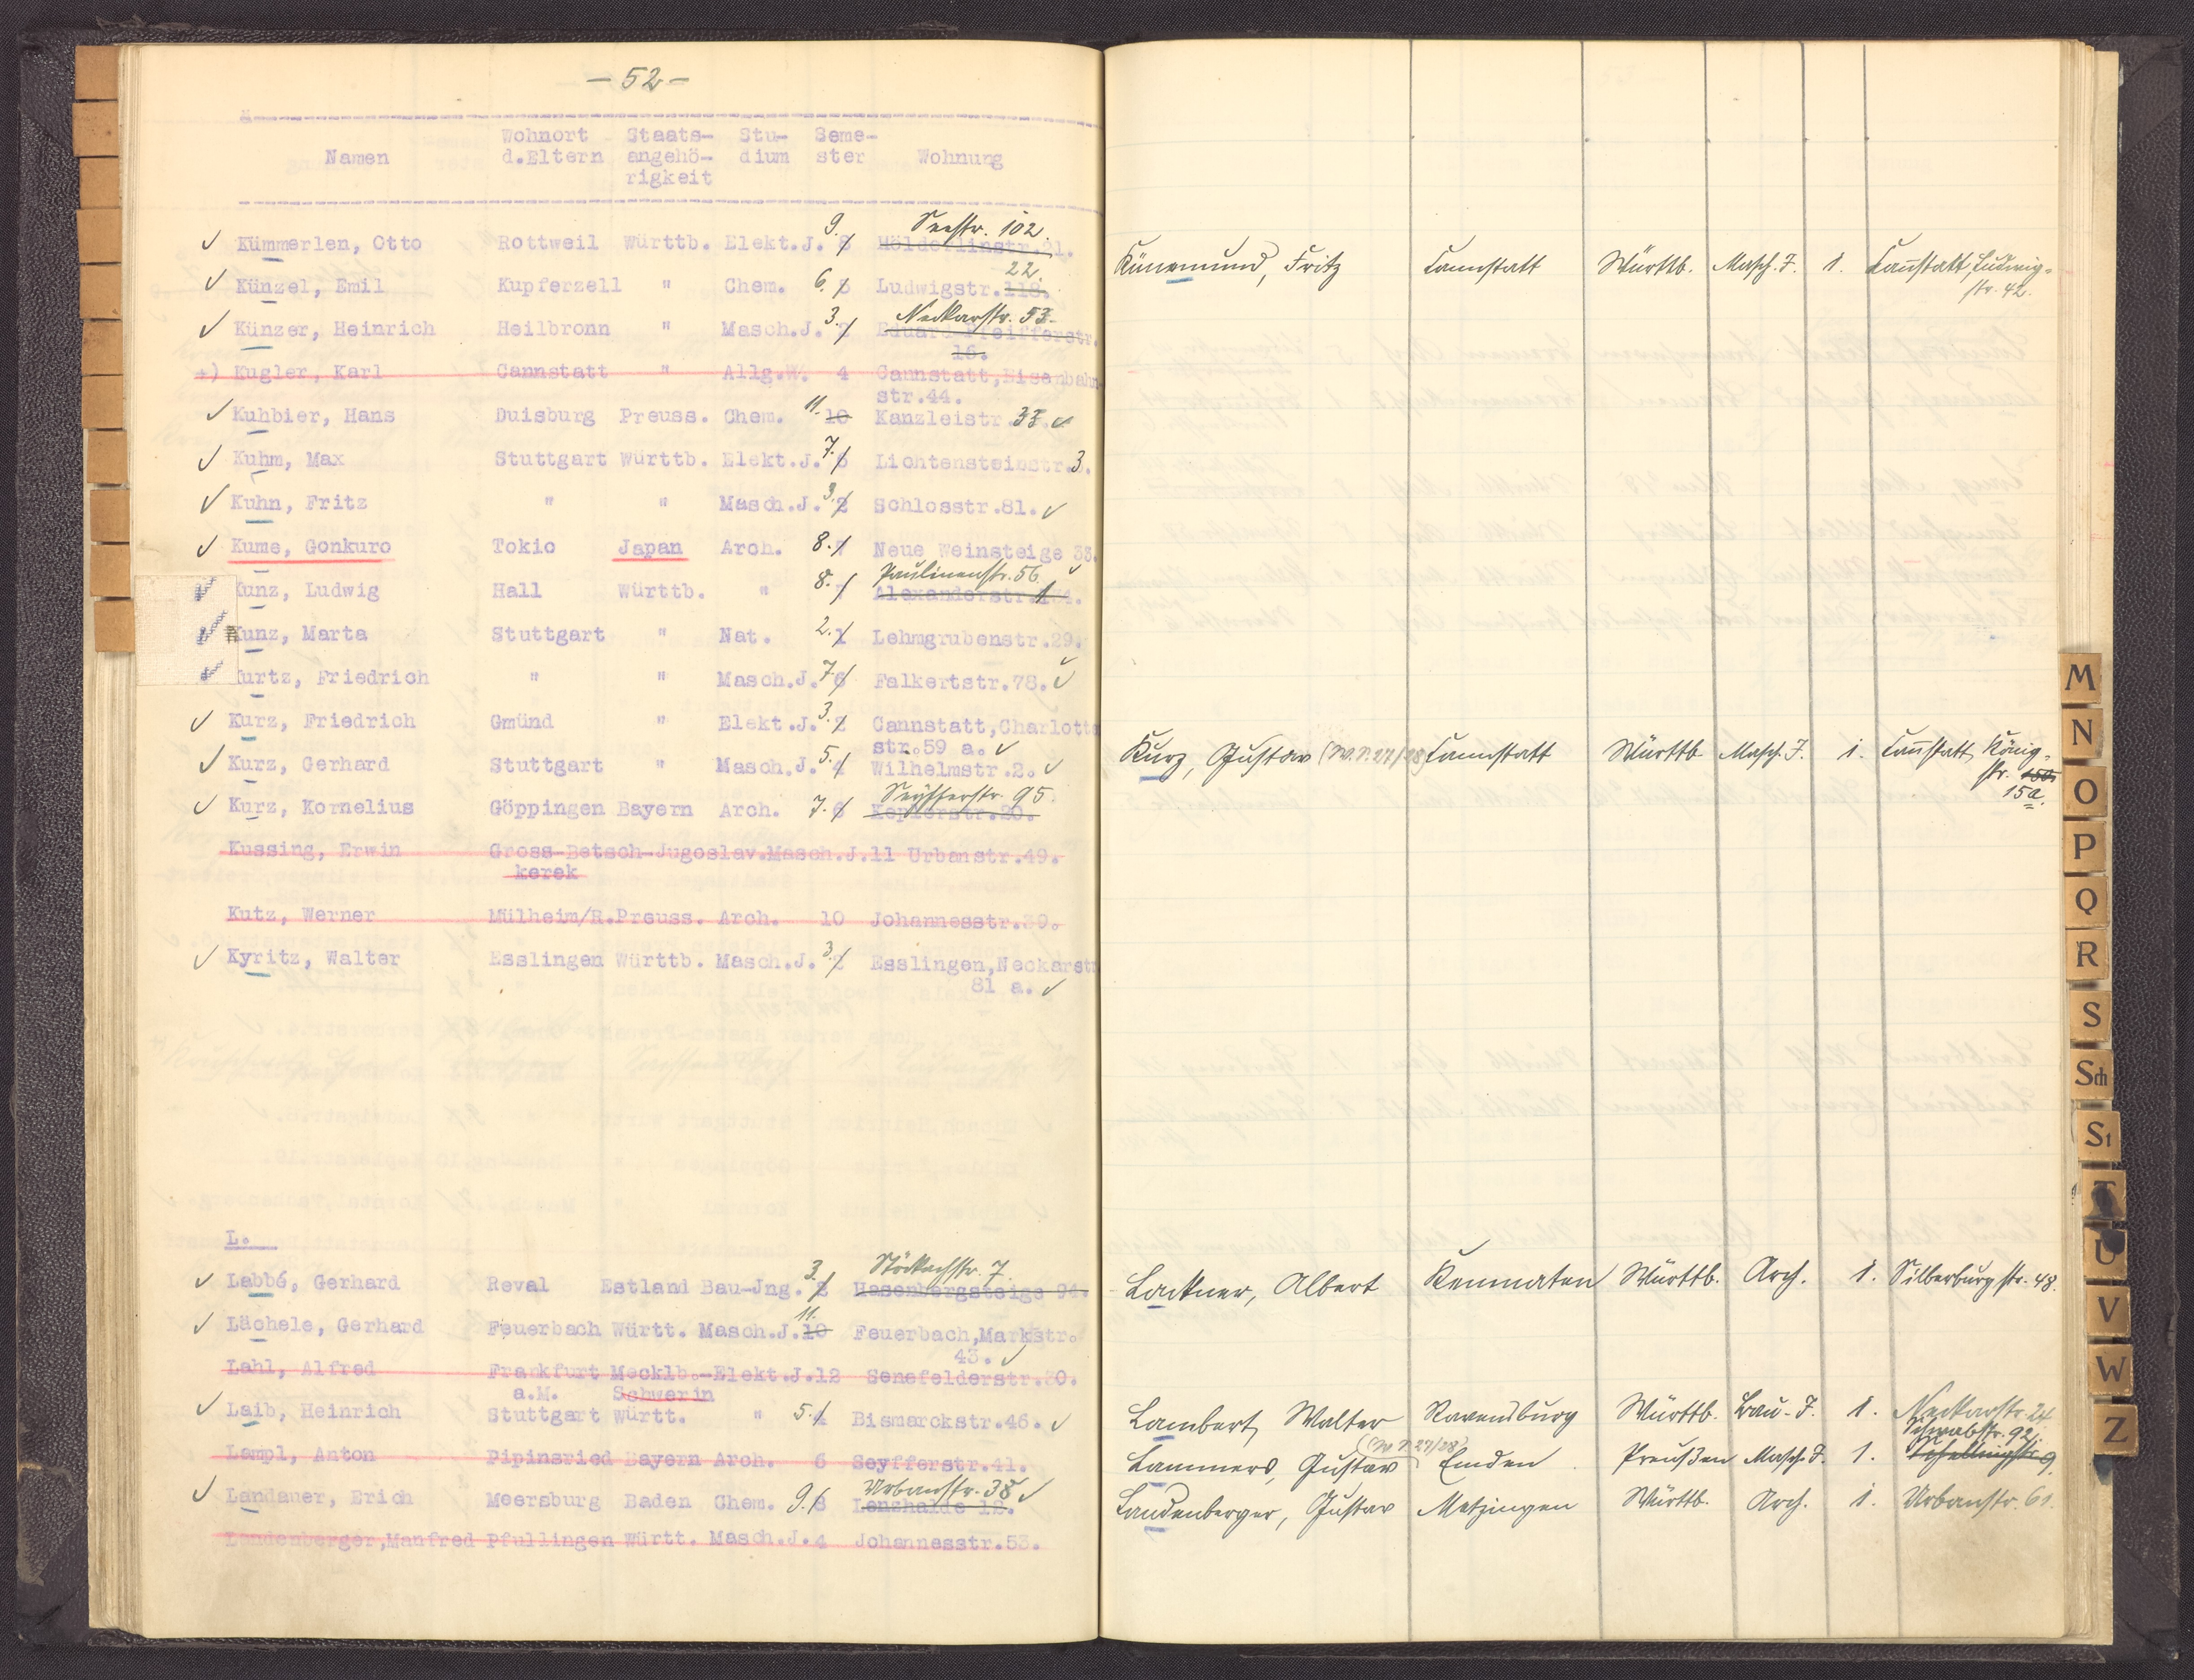 - 52 -
Namen Wohnort d.Eltern Staats-angehö-rigkeit Stu-dium Seme-ster Wohnung
Seestr. 102.
✓ Kümmerlen, Otto Rottweil Württb. Elekt.J. 9. 8 Hölderlinstr.21.
22.
✓ Künzel, Emil Kupferzell " Chem. 6. 5 Ludwigstr.118.
Neckarstr. 53.
✓ Künzer, Heinrich Heilbronn " Masch.J. 3. 2 Eduard Pfeifferstr.
16.
+) Kugler, Karl Cannstatt " Allg.W. 4 Cannstatt,Eisenbahn
str.44.
✓ Kuhbier, Hans Duisburg Preuss. Chem. 11. 10 Kanzleistr.33. ✓
✓ Kuhm, Max Stuttgart Württb. Elekt.J. 7. 6 Lichtensteinstr.3.
✓ Kuhn, Fritz " " Masch.J. 3. 2 Schlosstr.81. ✓
✓ Kume, Gonkuro Tokio Japan Arch. 8. 7 Neue Weinsteige 33.
Paulinenstr. 56. ✓
✓ Kunz, Ludwig Hall Württb. " 8. 7 Alexanderstr.134.
✓ Kunz, Marta Stuttgart " Nat. 2. 1 Lehmgrubenstr.29.
✓ Kurtz, Friedrich " " Masch.J. 7. 6 Falkertstr.78. ✓
✓ Kurz, Friedrich Gmünd " Elekt.J. 3. 2 Cannstatt,Charlotte
str.59 a. ✓
✓ Kurz, Gerhard Stuttgart " Masch.J. 5. 4 Wilhelmstr.2. ✓
Seyfferstr. 95.
✓ Kurz, Kornelius Göppingen Bayern Arch. 7. 6 Keplerstr.20.
Kussing, Erwin Gross-Betsch-Jugoslav.Masch.J.11 Urbanstr.49.
kerek
Kutz, Werner Mülheim/R.Preuss. Arch. 10 Johannesstr.39.
✓ Kyritz, Walter Esslingen Württb. Masch.J. 3. 2 Esslingen,Neckarstr
81 a. ✓
L.
Stöckachstr. 7.
✓ Labbé, Gerhard Reval Estland Bau-Jng. 3. 2 Hasenbergsteige 94.
✓ Lächele, Gerhard Feuerbach Württ. Masch.J. 11. 10 Feuerbach,Markstr.
43. ✓
Lahl, Alfred Frankfurt Mecklb.-Elekt.J.12 Senefelderstr.30.
a.M. Schwerin
✓ Laib, Heinrich Stuttgart Württ. " 5. 4 Bismarckstr.46. ✓
Lampl, Anton Pipinsried Bayern Arch. 6 Seyfferstr.41.
Urbanstr. 38 ✓
✓ Landauer, Erich Meersburg Baden Chem. 9. 8 Lenzhalde 12.
Landenberger,Manfred Pfullingen Württ. Masch.J.4 Johannesstr.53.
Künemund, Fritz Cannstatt Württb. Masch.J. 1. Cannstatt, Ludwig-
str. 42.
Kurz, Gustav (W.S. 27/28) Cannstatt Württb Masch.J. 1. Cannstatt, König-
str. 150
15a.
Lackner, Albert Kemnaten Württb. Arch. 1. Silberburgstr. 48.
Lambert, Walter Ravensburg Württb. Bau-J. 1. Neckarstr. 24
(W.S. 27/28) Schwabstr. 92.
Lammers, Gustav Emden Preußen Masch.J. 1. Schellingstr. 9.
Landenberger, Gustav Metzingen Württb. Arch. 1. Urbanstr. 61.
M
N
O
P
Q
R
S
Sch
St
T
U
V
W
Z